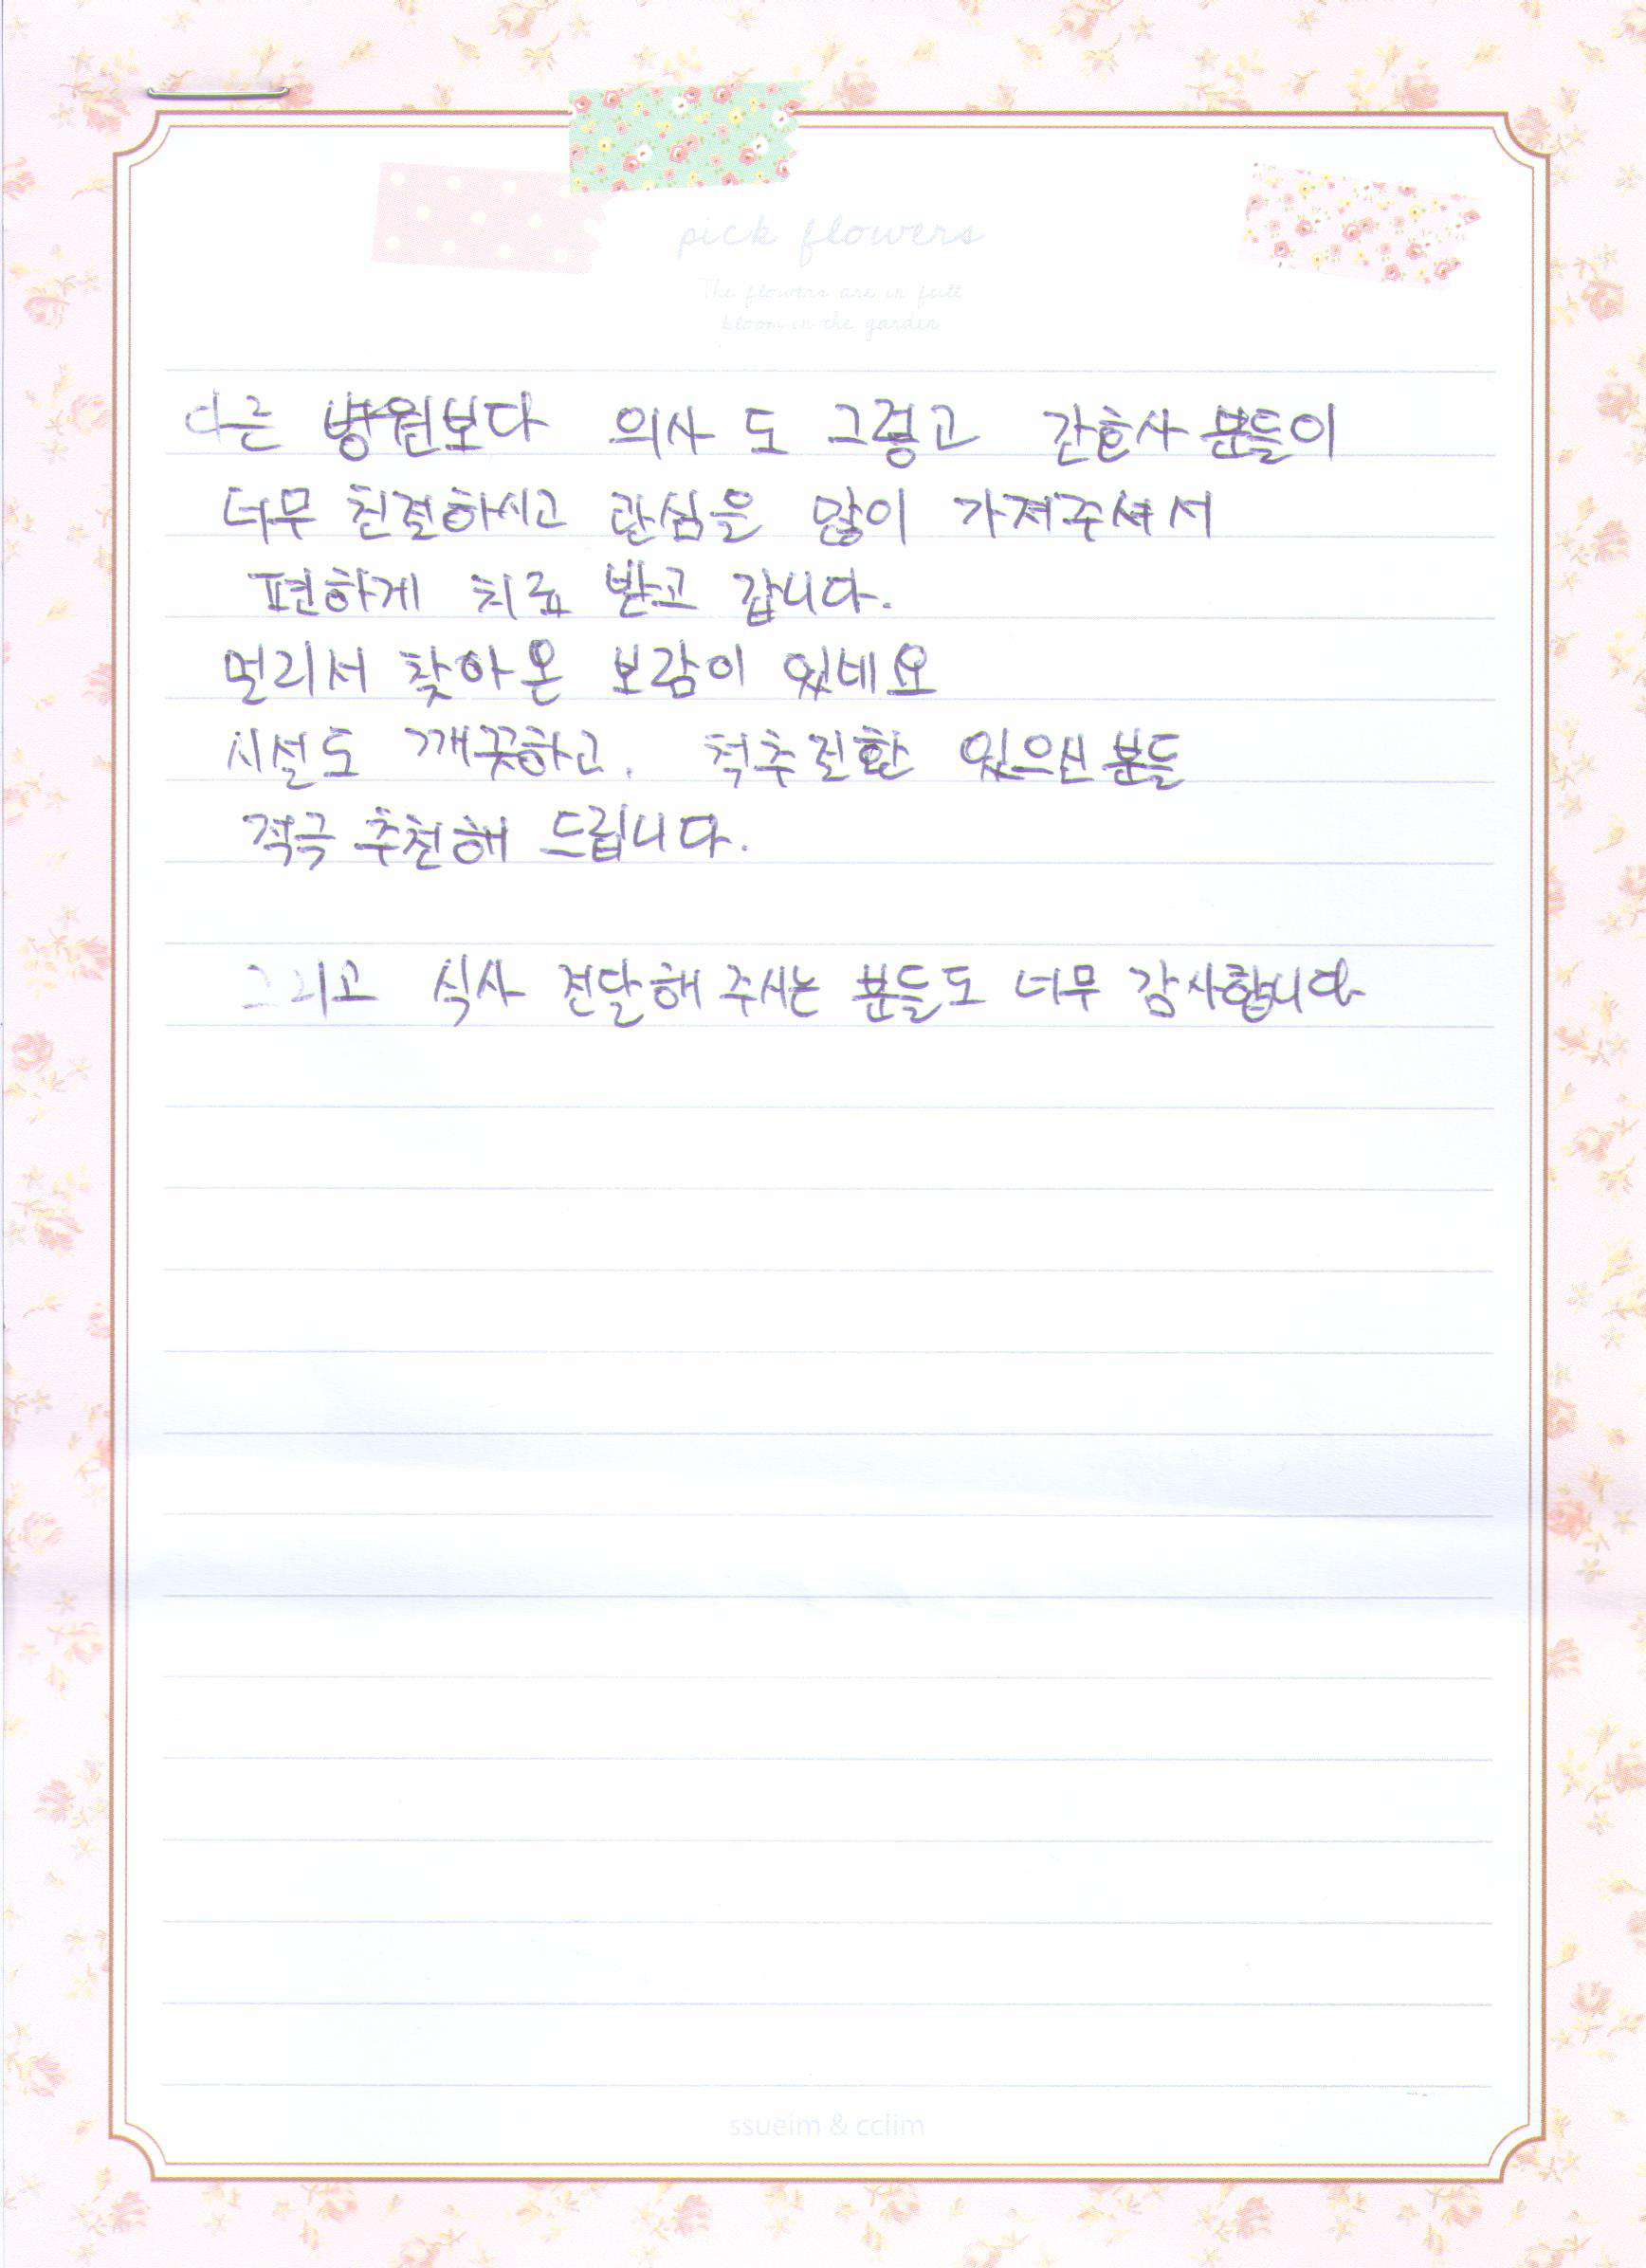 pick flowers
The flowers are in full
bloom in the garden
다른 병원보다 의사 도 그렇고 간호사 분들이
너무 친절하시고 관심을 많이 가져주셔서
편하게 치료 받고 갑니다.
멀리서 찾아온 보람이 있네요
시설도 깨끗하고. 척추질환 있으신분들
적극 추천해 드립니다.
그리고 식사 전달해 주시는 분들도 너무 감사합니다
ssueim & cclim